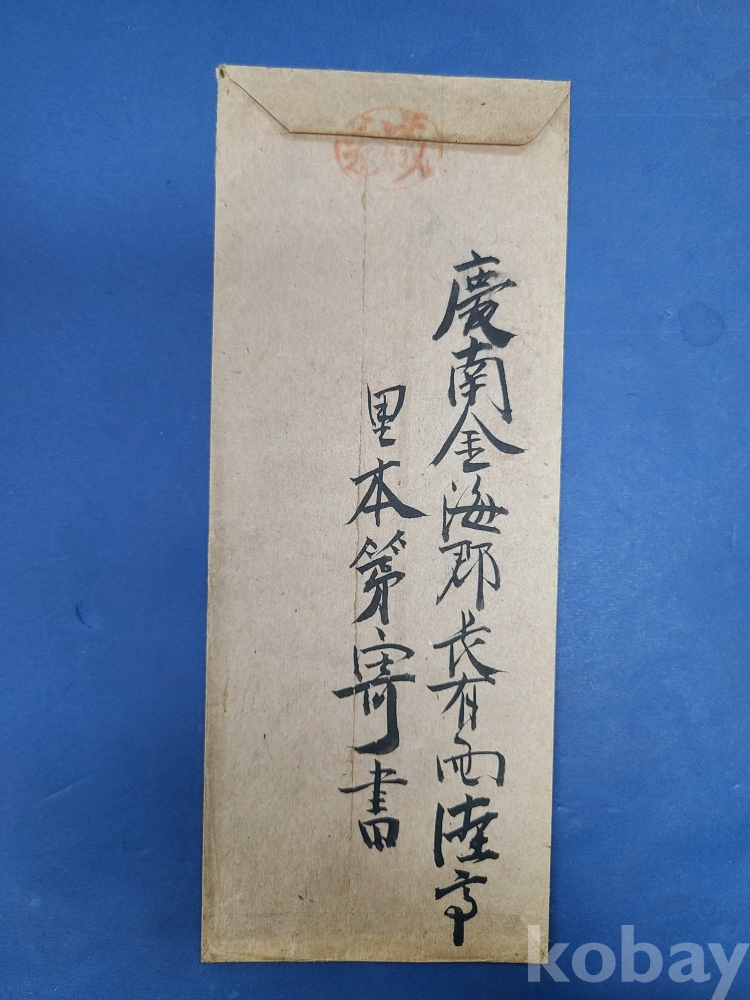 慶南金海郡長有面陸亭
里本第寄書
kobay